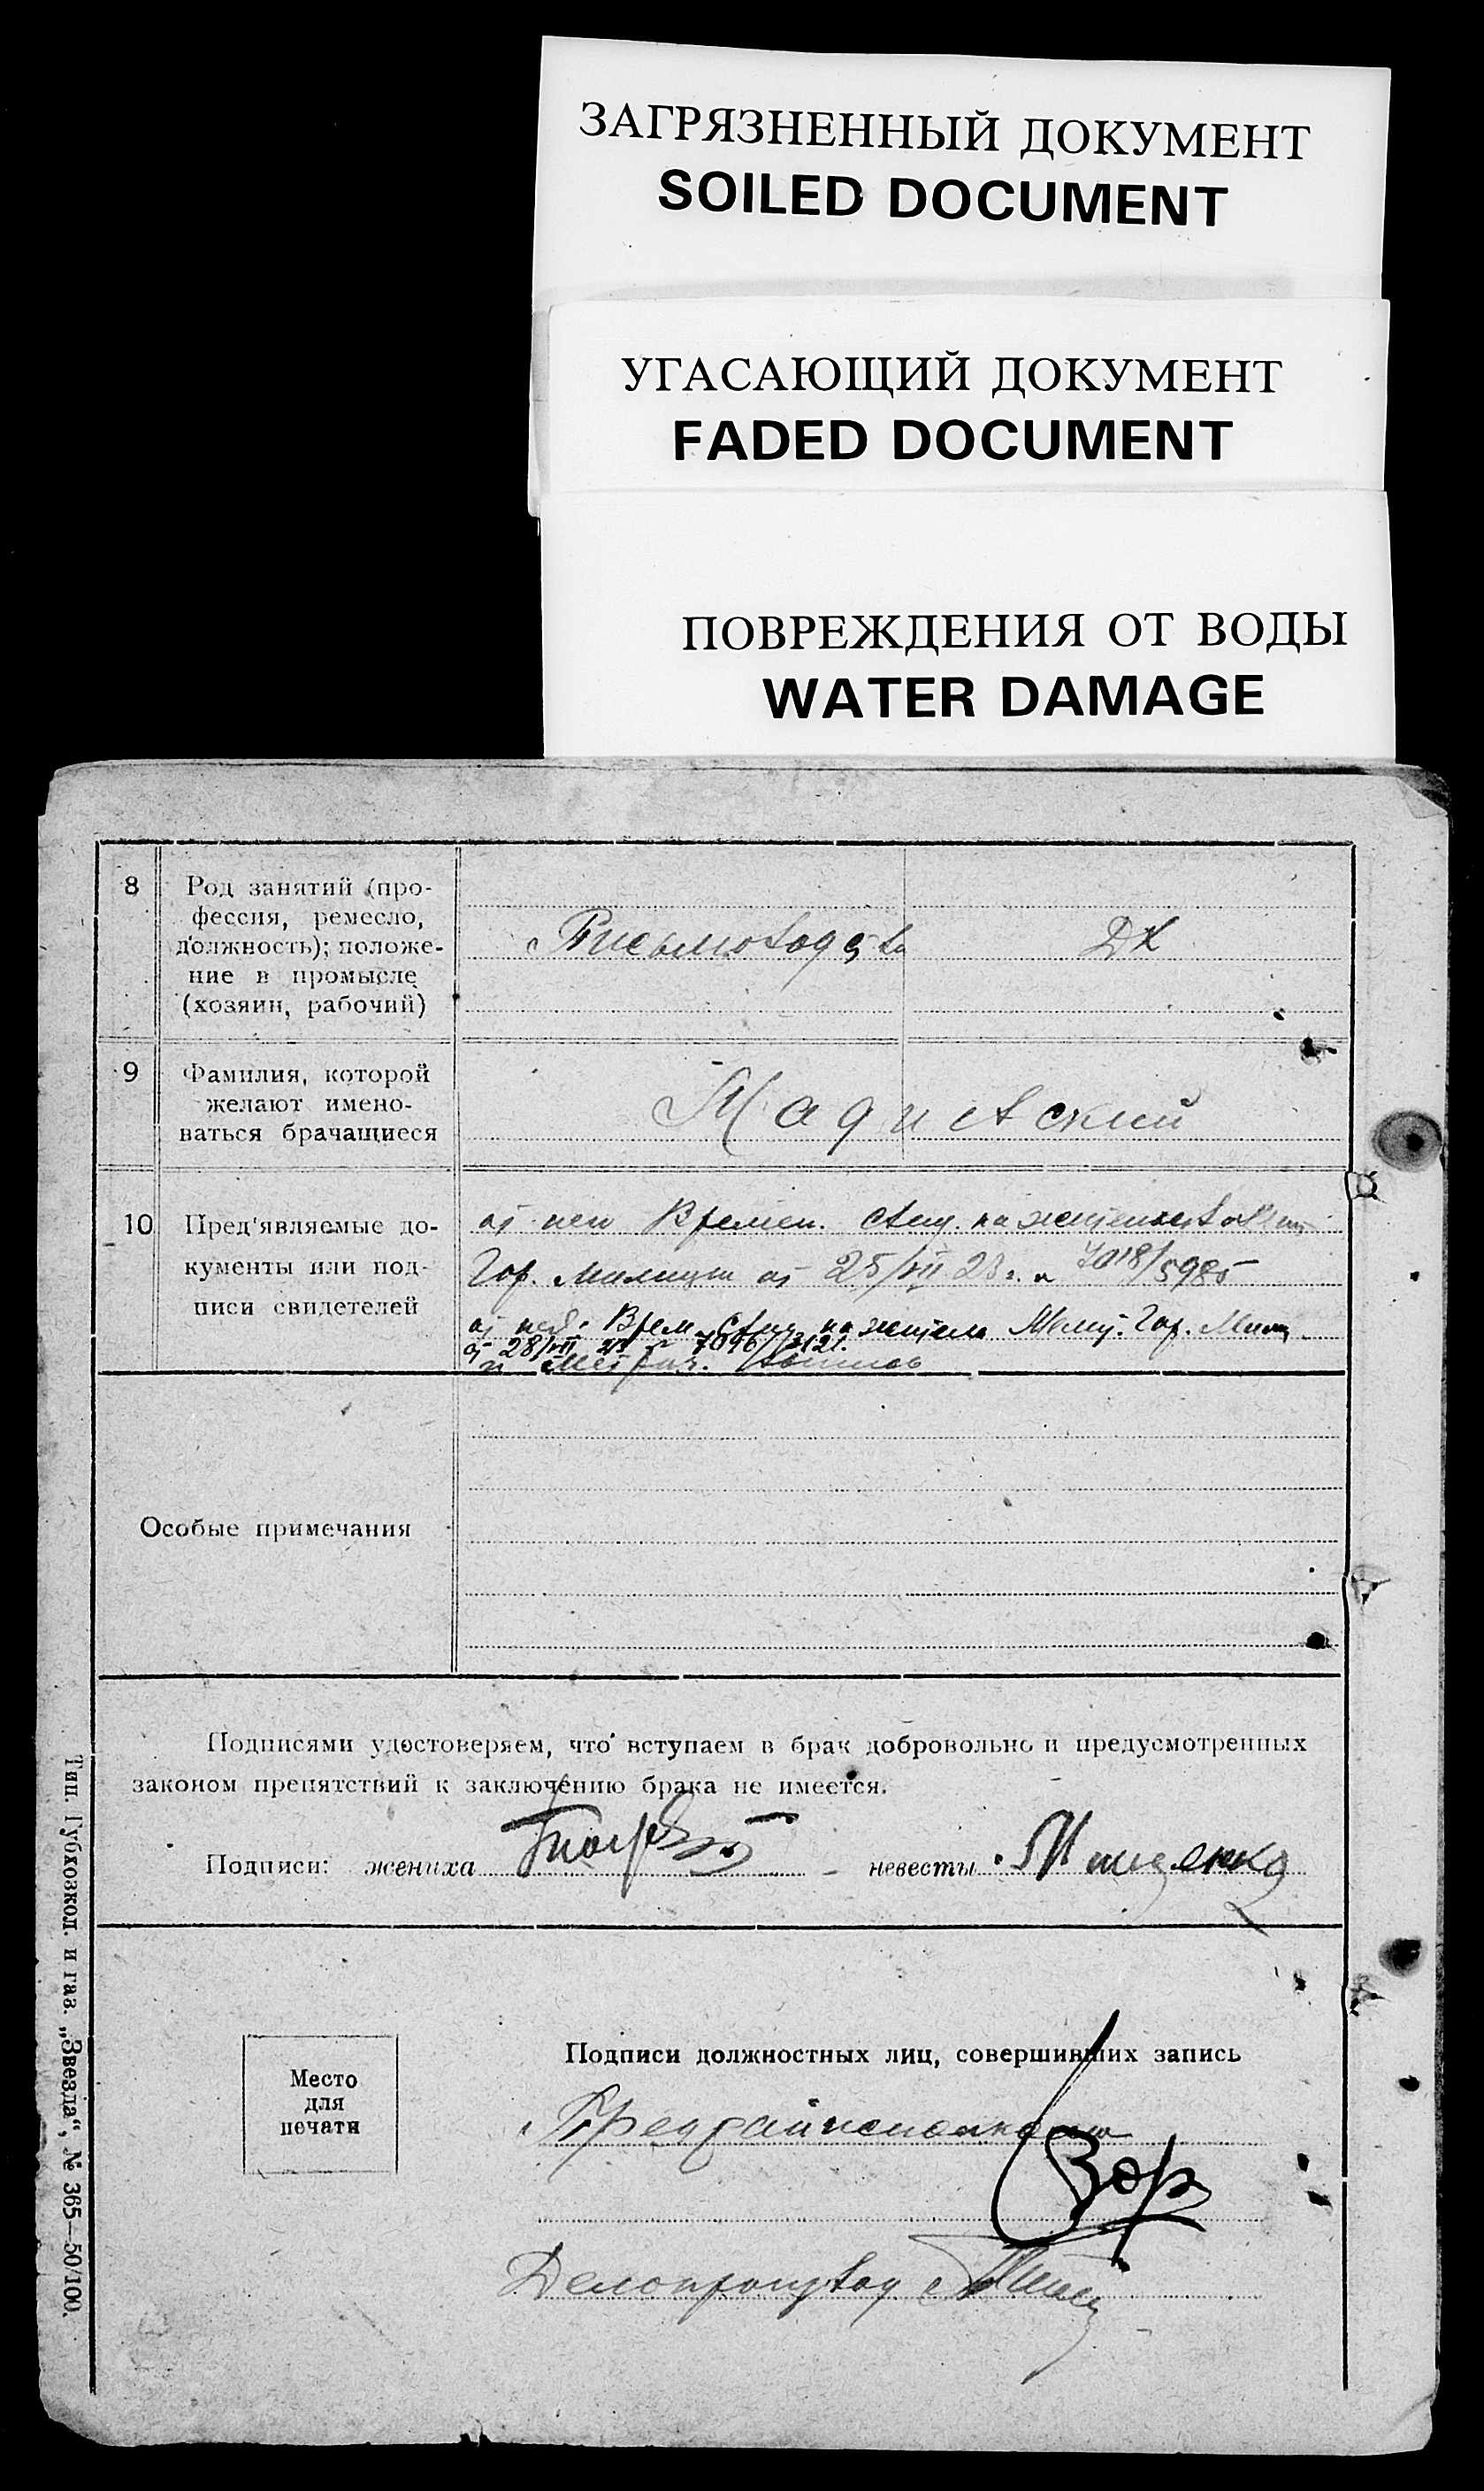 ЗАГРЯЗНЕННЫЙ ДОКУМЕНТ
SOILED DOCUMENT
УГАСАЮЩИЙ ДОКУМЕНТ
FADED DOCUMENT
ПОВРЕЖДЕНИЯ ОТ ВОДЫ
WATER DAMAGE
8
Род занятий (про-
фессия, ремесло,
должность); положе-
ние в промысле
(хозяин, рабочий)
Письмовод
ДХ
9
Фамилия, которой
желают имено-
ваться брачащиеся
10
Пред'являемые до-
кументы или под-
писи свидетелей
от Времен.
Гор. Милиции от 25/VII 23 г. 7018/5985
от Врем. Гор.
от 28/VII 7096
и Метрич.
Особые примечания
Подписями удостоверяем, что вступаем в брак добровольно и предусмотренных
законом препятствий к заключению брака не имеется.
Подписи: жениха невесты Мищенко
Место
для
печати
Подписи должностных лиц, совершивших запись
Делопроизвод
Тип. Губкозкол. и газ. „Звезда", № 365—50/100.